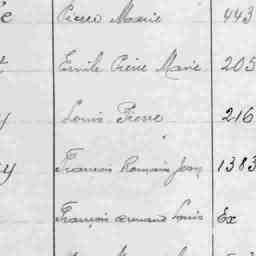 Pierre Marie 443
Emile Pierre Marie 205
y Louis Pierre 216
y François Romain Jean 1383
François Armand Louis Ex